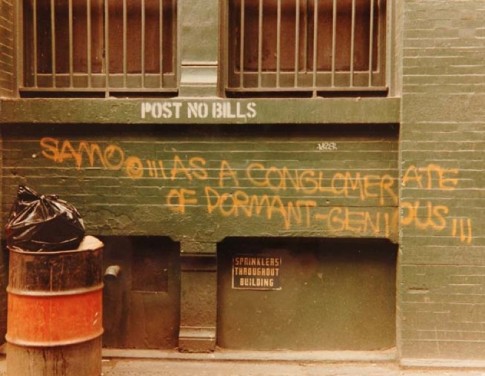 POST NO BILLS
SAMO©!!! AS A CONGLOMERATE
OF DORMANT-GENIOUS!!!
SPRINKLERS
THROUGHOUT
BUILDING